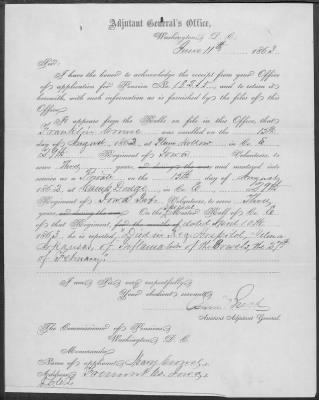 Adjutant General's Office,
Washington, D. C.
June 11th 1863.
Sir:
I have the honor to acknowledge the receipt from your Office
of application for Pension No. 12311, and to return it
herewith, with such information as is furnished by the files of this
Office.
It appears from the Rolls on file in this Office, that
Franklin was enrolled on the 15th
day of August, 1862, at Plum Hollow in Co. E
29th Regiment of Iowa Volunteers, to
serve Three years, or during the war and mustered into
service as a Private on the 15th day of August,
1862, at Camp Dodge, in Co. E, 29th
Regiment of Iowa Volunteers, to serve Three
years, or during the war. On the Special Muster Roll of Co. E
of that Regiment, for the months of dated April 10th
1863, he is reported "Died in Reg. Hospital, Helena
Arkansas, of Inflammation of the Bowels, the 27th
of February."
I am, Sir, very respectfully,
Your obedient servant,
Assistant Adjutant General.
The Commissioner of Pensions,
Washington, D. C.
Memoranda:
Name of applicant, Mary
Address, Fremont Co. Iowa